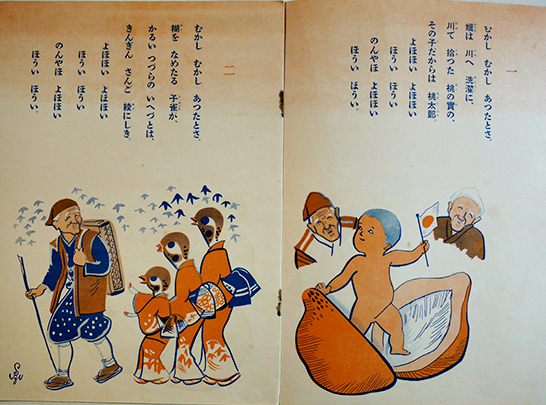 一
むかし むかし あつたとさ、
媼は 川へ 洗濯に、
川で 拾つた 桃の實の、
その子だからは 桃太郎
よほほい よほほい
ほうい ほうい
のんやほ よほほい
ほうい ほうい。
二
むかし むかし あつたとさ、
糊を なめたる 子雀が、
かるい つづらの いへづとは、
きんぎん さんご 綾にしき。
よほほい よほほい
ほうい ほうい
のんやほ よほほい
ほうい ほうい。